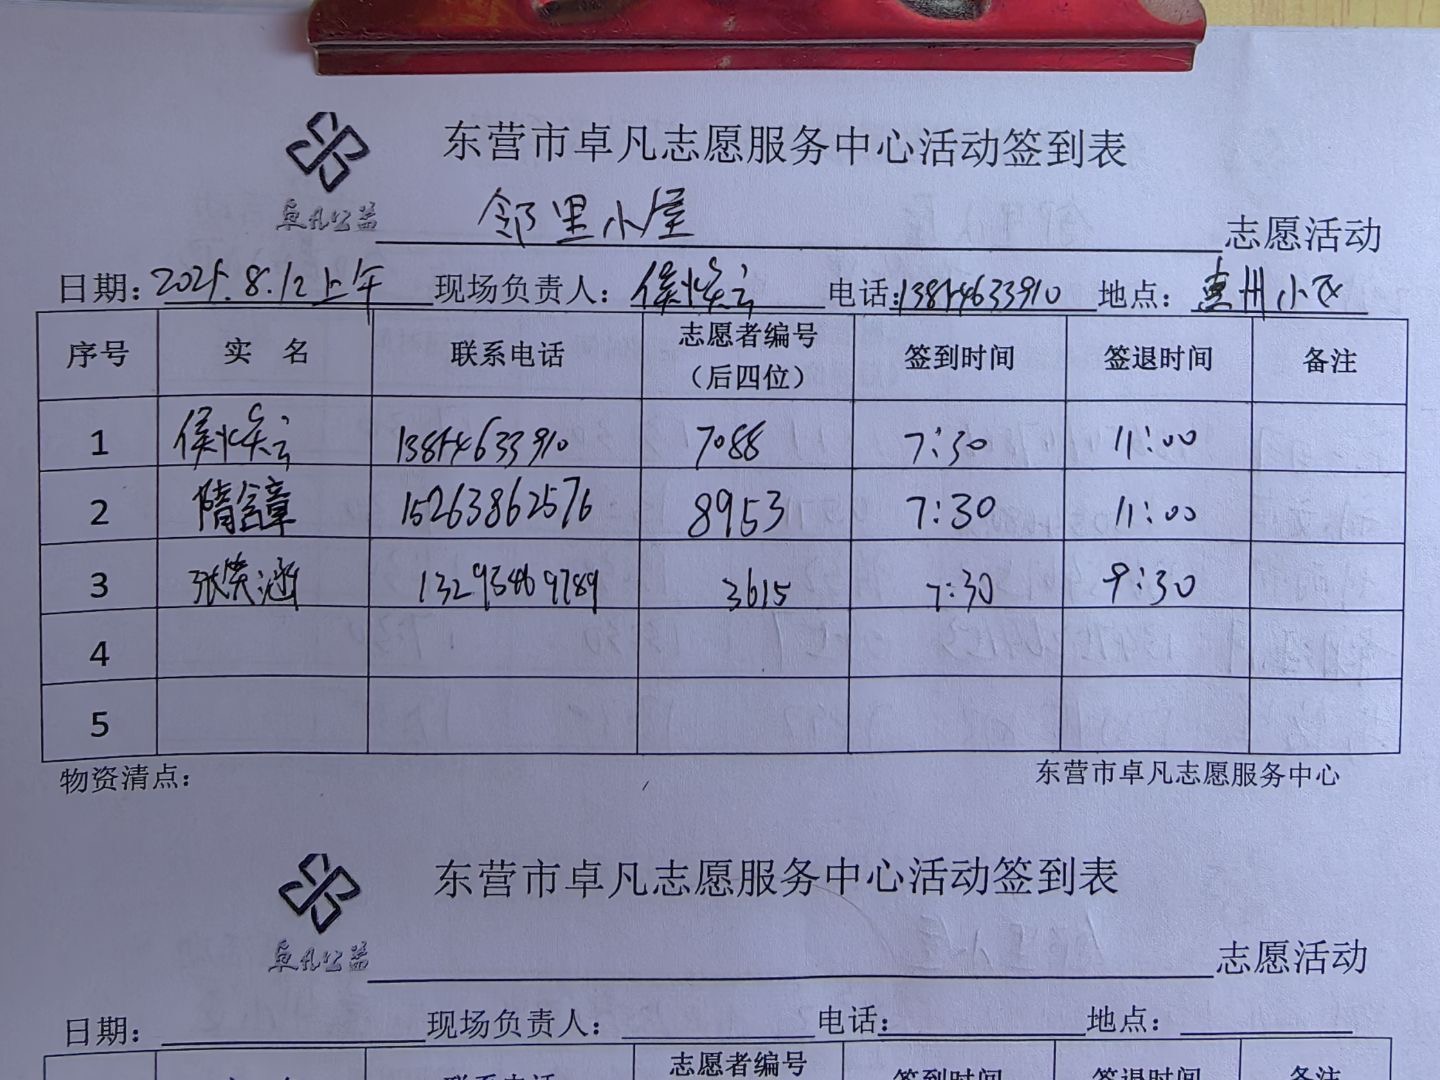 东营市卓凡志愿服务中心活动签到表
卓凡公益 邻里小屋 志愿活动
日期：2025.8.12上午 现场负责人：侯焕云 电话：13854633910 地点：惠州小区
序号 实 名 联系电话 志愿者编号（后四位） 签到时间 签退时间 备注
1 侯焕云 13854633910 7088 7:30 11:00
2 隋含章 15263862576 8953 7:30 11:00
3 张笑涵 3615 7:30 9:30
4
5
物资清点： 东营市卓凡志愿服务中心
东营市卓凡志愿服务中心活动签到表
卓凡公益 志愿活动
日期： 现场负责人： 电话： 地点：
志愿者编号
签到时间 签退时间 备注